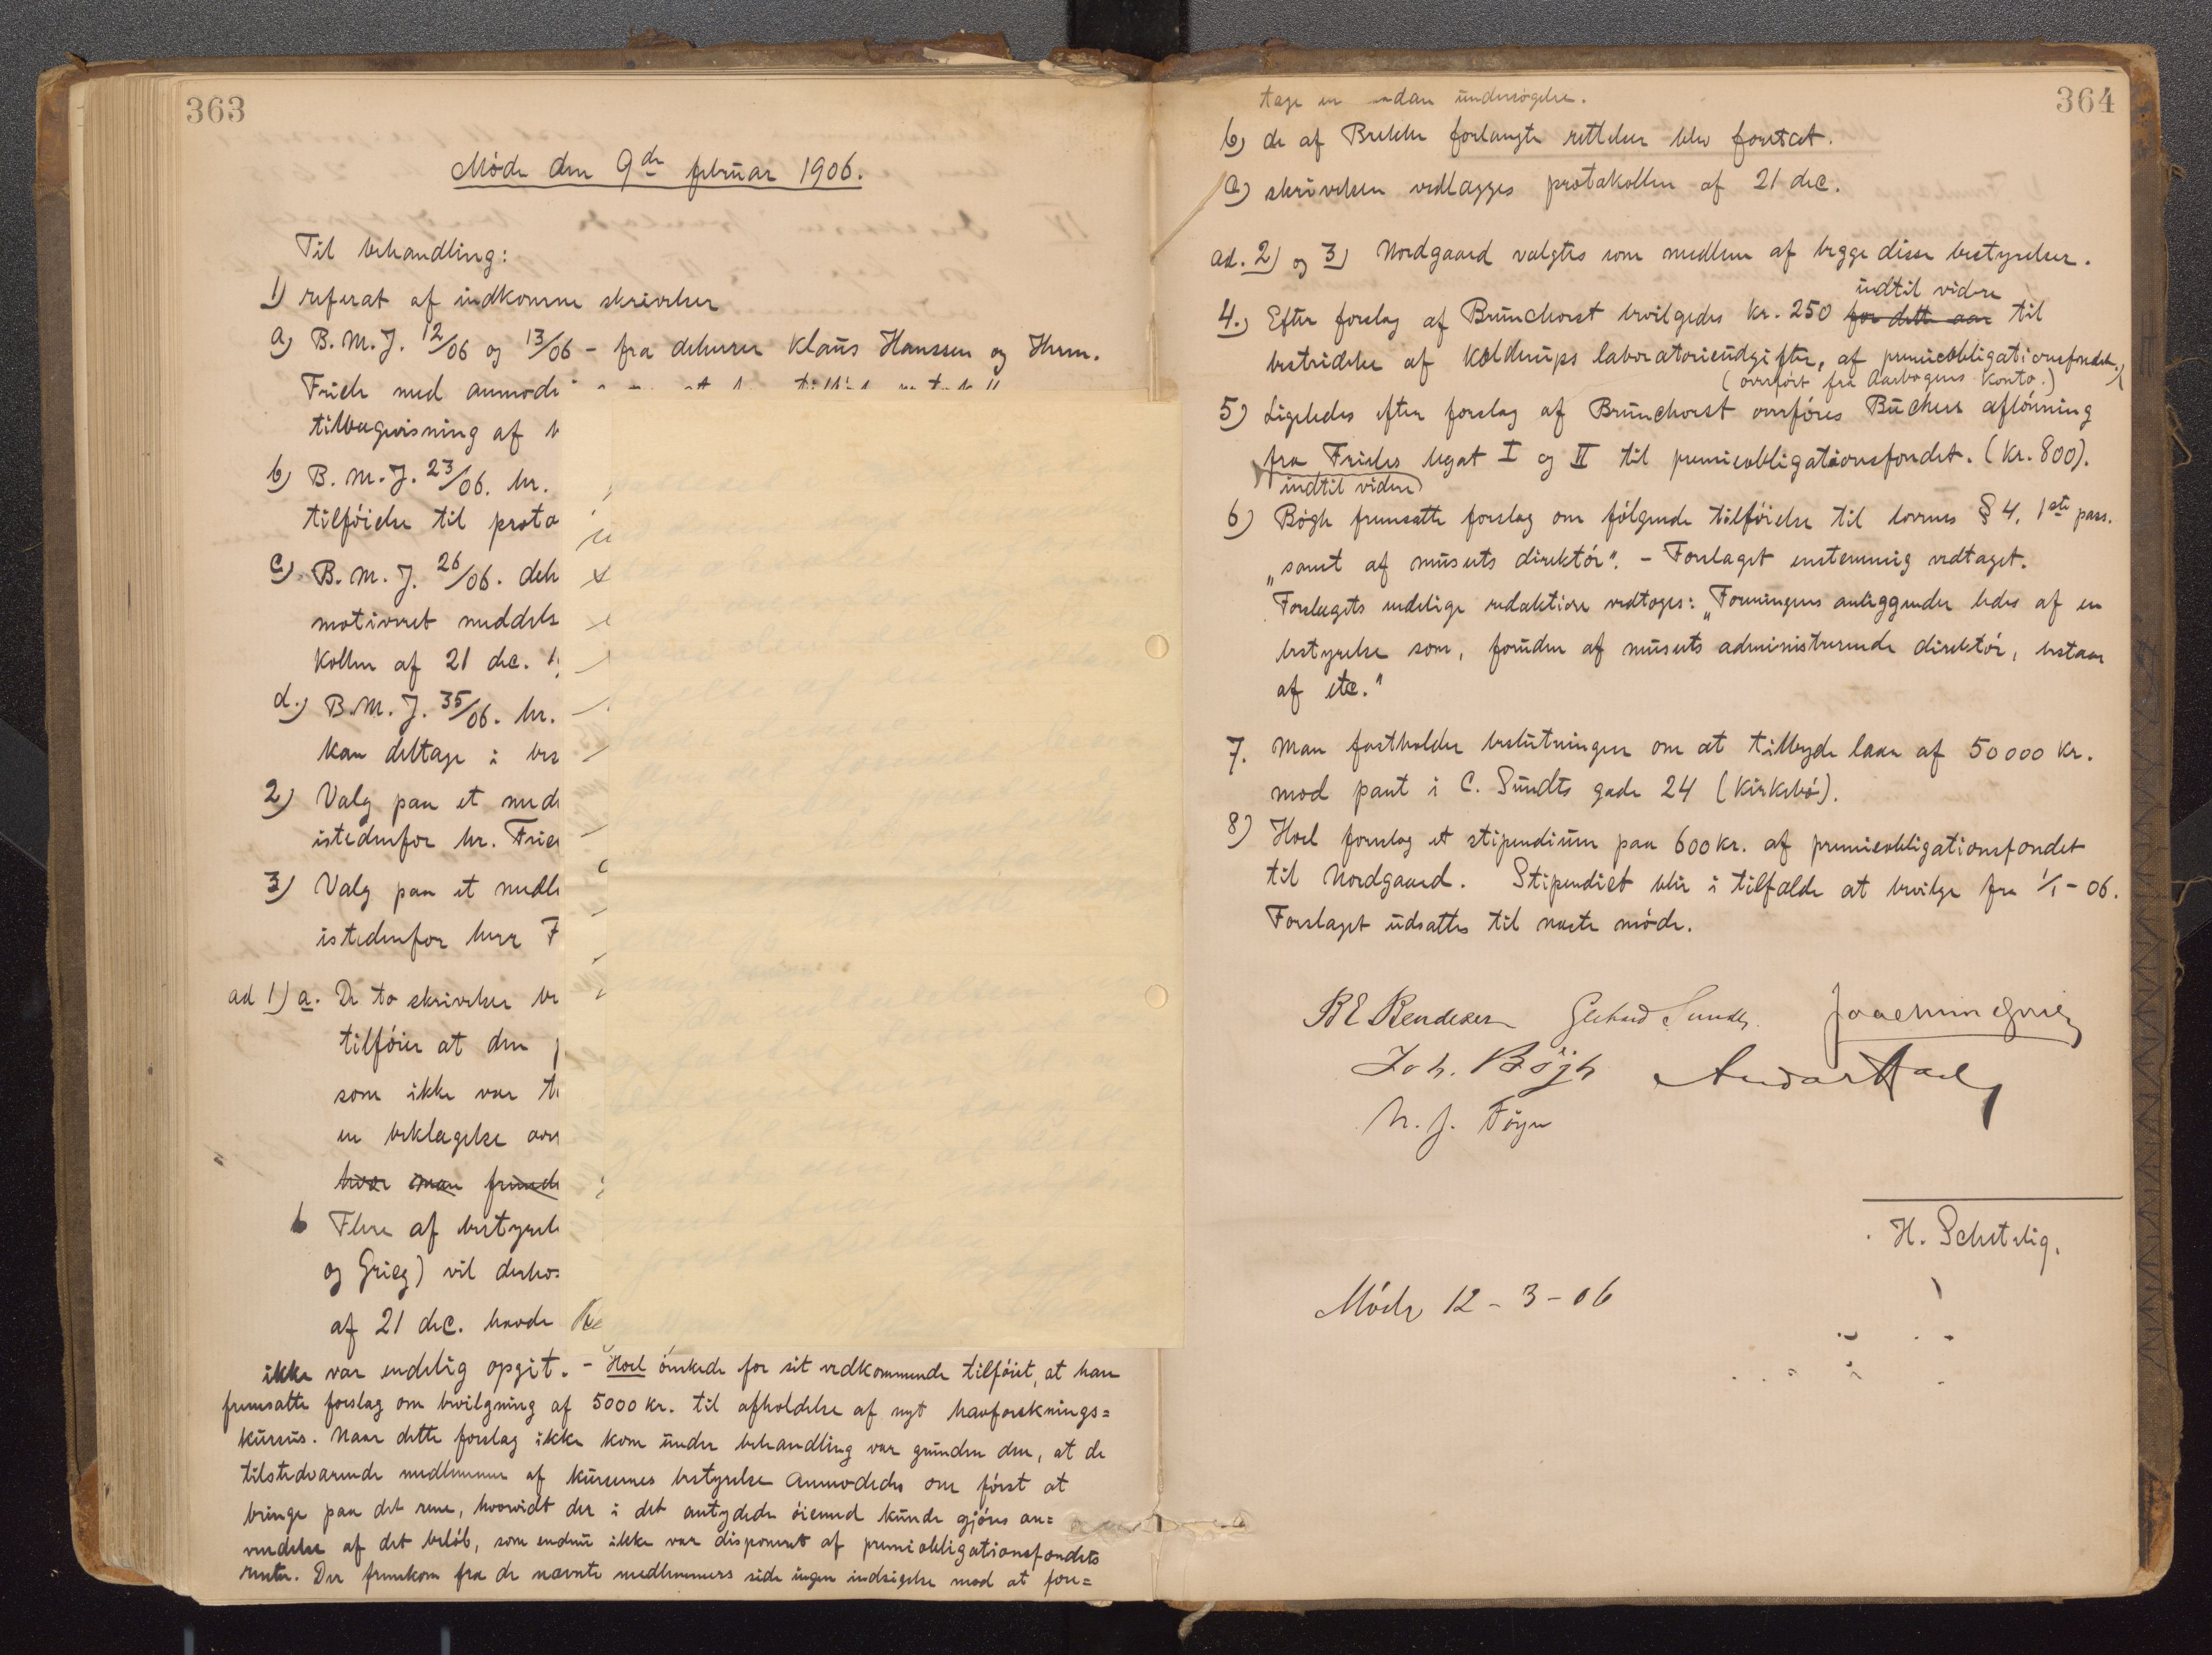 363
Møde den 9de februar 1906.
Til behandling:
1) referat af indkomne skrivelser
a) B. M. J. 12/06 og 13/06 - fra dherrer Klaus Hanssen og Herm.
Friele med anmod
tilbagevisning af
b) B. M. J. 23/06. hr.
tilføielse til proto
c) B. M. J. 26/06. dch
motiveret meddels
kollen af 21 dec.
d.) B. M. J. 35/06. hr.
kan deltage i bes
2) Valg paa et med
istedenfor hr. Frie
3) Valg paa et medle
istedenfor herr F
ad 1) a. De to skrivelser
tilføier at den
som ikke var
en beklagelse
hvor man
b Flere af bestyrel
og Grieg) vil
af 21 dec. havde
ikke var endelig opgit. - Hoel ønskede for sit vedkommende tilføiet, at han
fremsatte forslag om bevilgning af 5000 kr. til afholdelse af nyt havforsknings=
kursus. Naar dette forslag ikke kom under behandling var grunden den, at de
tilstedværende medlemmer af kursernes bestyrelse anmodedes om først at
bringe paa det rene, hvorvidt der i det antydede øiemed kunde gjøres an=
vendelse af det beløb, som endnu ikke var disponeret af premieobligationsfondets
renter. Der fremkom fra de nævnte medlemmers side ingen indsigelse mod at fore=
364
tage en sadan undersøgelse.
b) de af Brekke forlangte rettelser blev foretat.
c) skrivelsen vedlægges protokollen af 21 dec.
ad. 2) og 3) Nordgaard valgtes som medlem af begge disse bestyrelser.
indtil videre
4.) Efter forslag af Brunchorst bevilgedes kr. 250 for dette aar til
bestridelse af Kolderups laboratorieudgifter, af premieobligationsfondet.
(overført fra Aarbogens Konto.)
5) Ligeledes efter forslag af Brunchorst overføres Büchers aflønning
fra Frieles legat I og II til premieobligationsfondet. (kr. 800).
indtil videre
6) Bøgh fremsatte forslag om følgende tilføielse til lovenes § 4. 1ste pass.
„samt af museets direktør". - Forslaget enstemmig vedtaget.
Forslagets endelige redaktion vedtoges: „Foreningens anliggender ledes af en
bestyrelse som, foruden af museets administrerende direktør, bestaar
af etc."
7. Man fastholder beslutningen om at tilbyde laan af 50000 kr.
mod pant i C. Sundts gade 24 (Kirkebø).
8) Hoel foreslog et stipendium paa 600 kr. af premieobligationsfondet
til Nordgaard. Stipendiet blir i tilfælde at bevilge fra 1/1 - 06.
Forslaget udsattes til næste møde.
B E Bendixen
Joachim Grieg
Joh. Bøgh
N. J. Føyn
H. Schetelig.
Møde 12 - 3 - 06